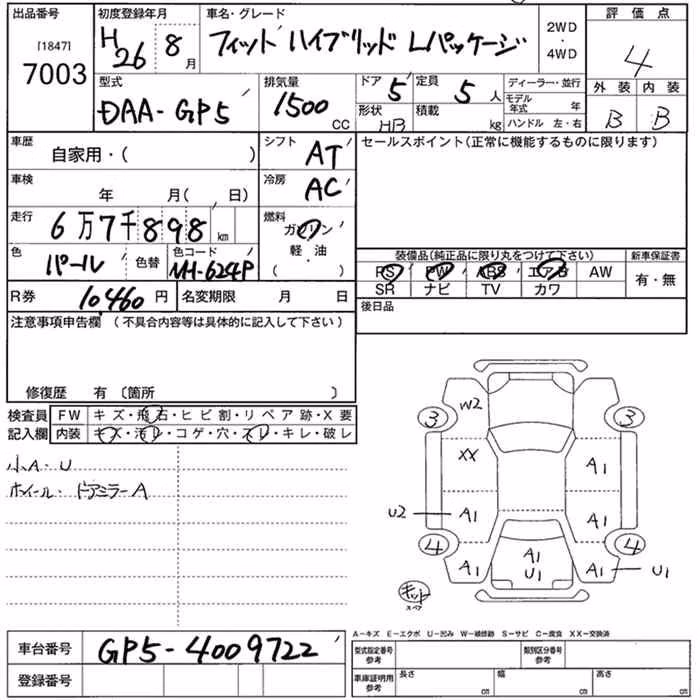 出品番号
[1847]
7003
初度登録年月
H26 8月
車名・グレード
フィット ハイブリッド Lパッケージ
2WD
・
4WD
評価点
4
外装 内装
B B
型式
DAA-GP5
排気量
1500 CC
ドア 5
定員 5人
形状 HB
積載 kg
ディーラー・並行
モデル年式 年
ハンドル 左・右
車歴
自家用・( )
シフト AT
冷房 AC
車検 年 月( 日)
走行 6万7千898km
燃料
ガソリン
軽・油
( )
色 パール 色替
色コード NH-624P
R券 10,460円
名変期限 月 日
セールスポイント(正常に機能するものに限ります)
装備品(純正品に限り丸をつけて下さい)
PS PW ABS エアB AW
SR ナビ TV カワ
新車保証書
有・無
後日品
注意事項申告欄 (不具合内容等は具体的に記入して下さい)
修復歴 有 〔箇所 〕
検査員記入欄
FW キズ・飛石・ヒビ割・リペア跡・X要
内装 キズ・汚レ・コゲ・穴・スレ・キレ・破レ
小A・U
ホイール・ドアミラーA
W2
3 3
XX A1
U2 A1 A1
4 4
A1 A1 A1 U1
U1
キット
スペア
A-キズ E-エクボ U-凹み W-補修跡 S-サビ C-腐食 XX-交換済
車台番号 GP5-4009722
登録番号
型式指定番号
参考
類別区分番号
参考
車庫証明用
参考
長さ cm
幅 cm
高さ cm